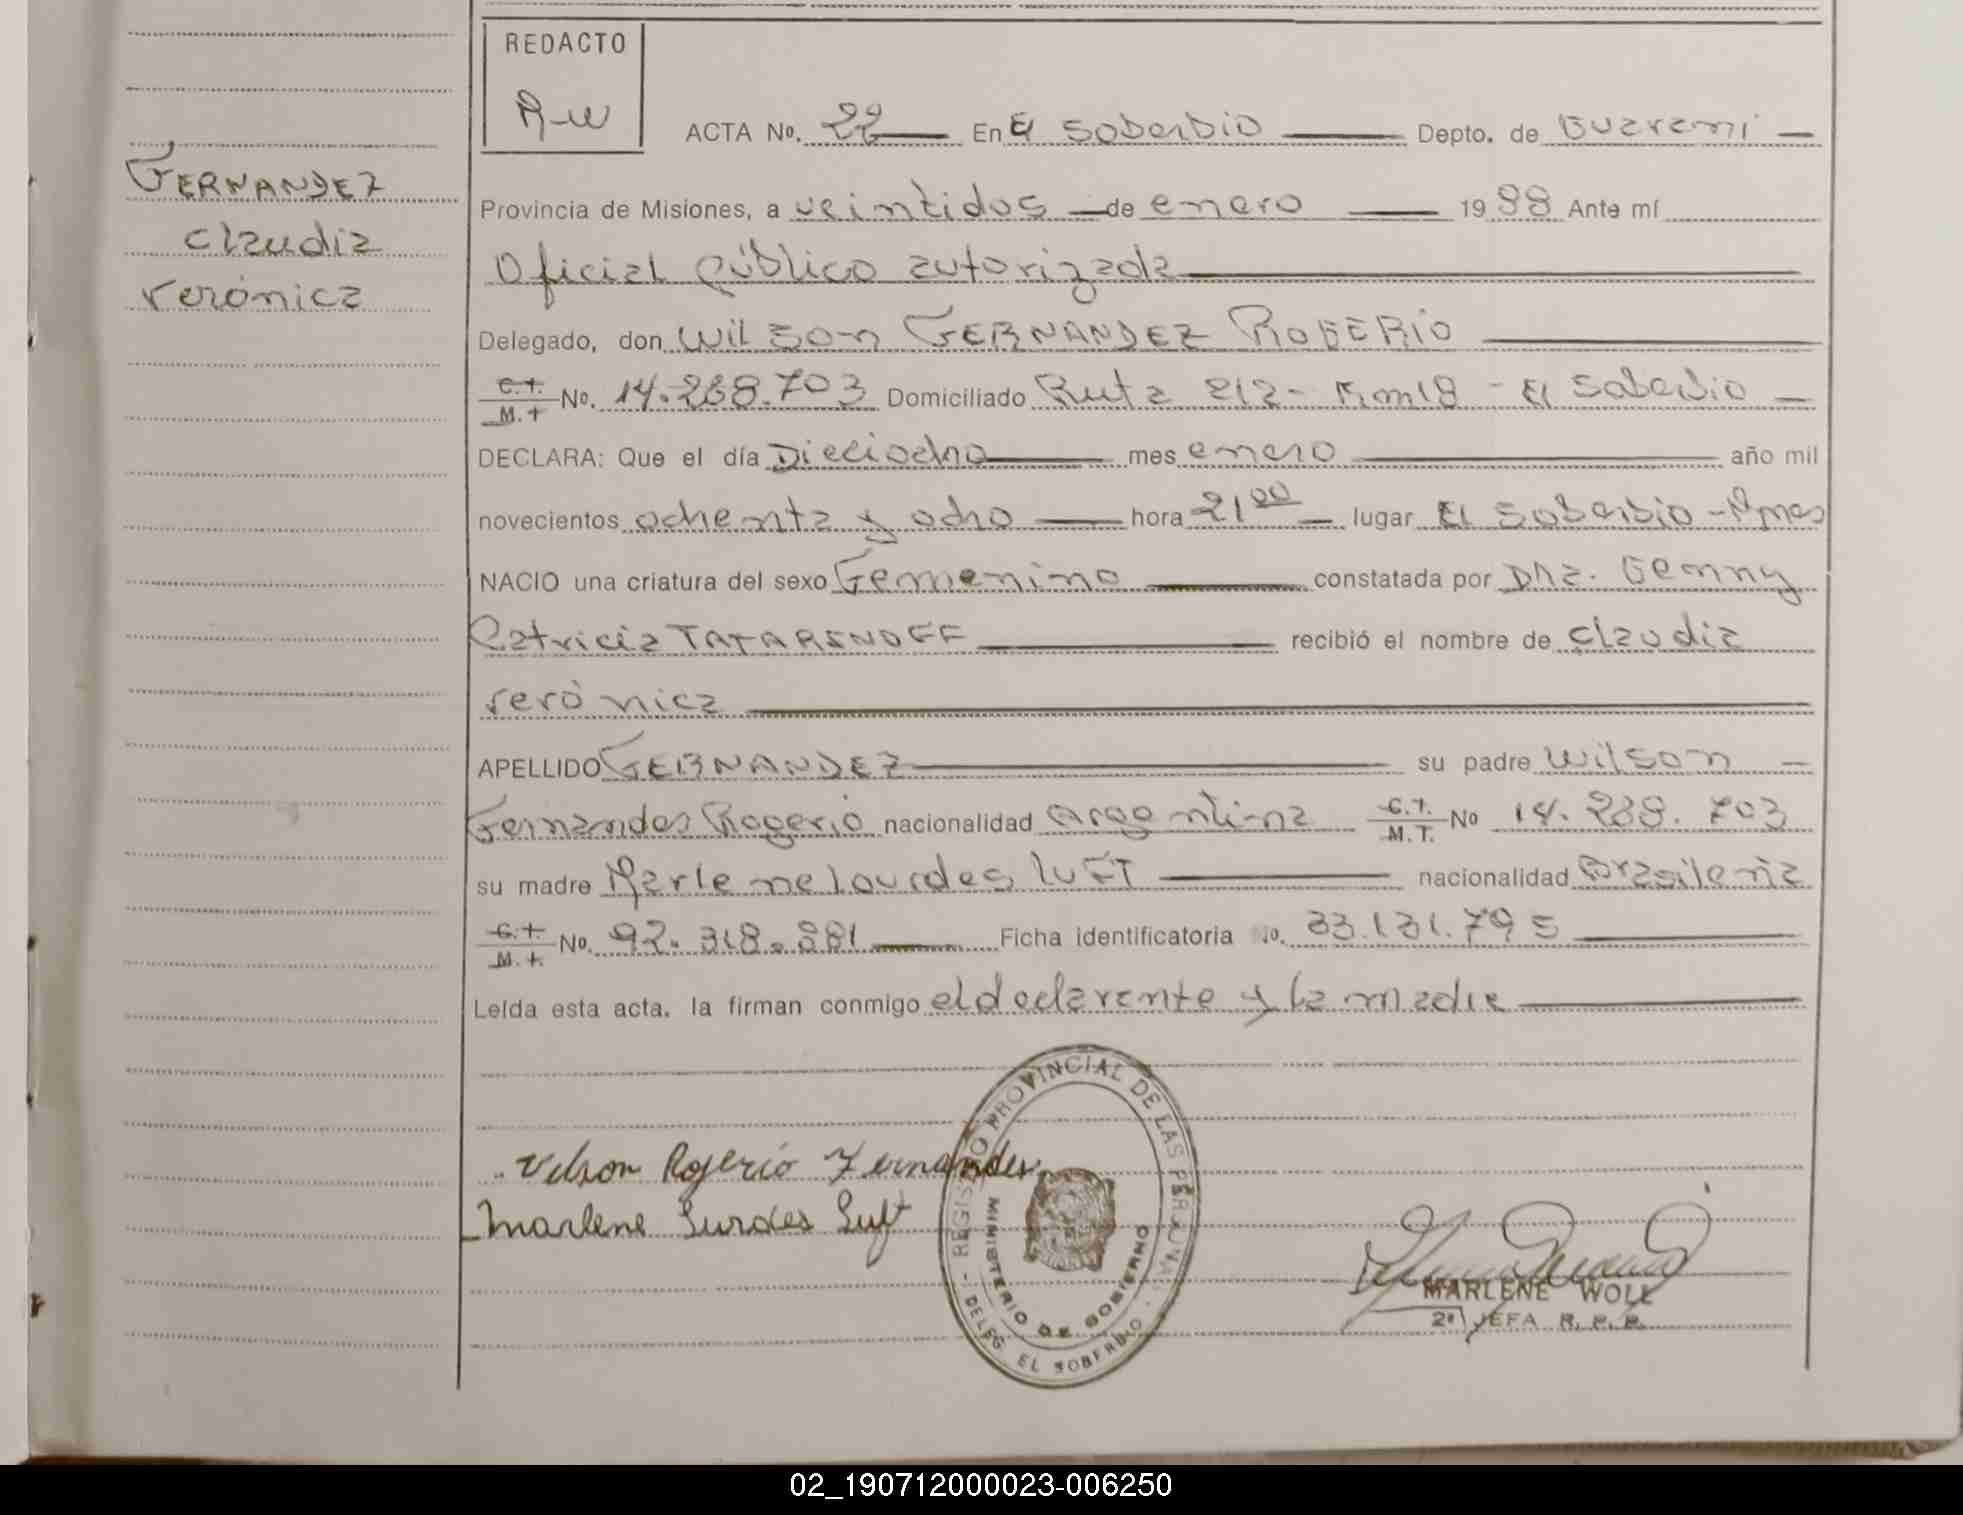 REDACTO
R-W
ACTA No. 22 En El Soberbio Depto. de Guarani
FERNANDEZ
Claudia
Verónica
Provincia de Misiones, a veintidos de enero 1988 Ante mí
Oficial público autorizada
Delegado, don Wilson FERNANDEZ ROGERIO
C.I. M.I No. 14.268.703 Domiciliado Ruta 212 - Km18 - El Soberbio
DECLARA: Que el día Dieciocho mes enero año mil
novecientos ochenta y ocho hora 21 00 lugar El Soberbio - Mnes
NACIO una criatura del sexo Femenino constatada por Dra. Genny
Patricia TATARENOFF recibió el nombre de Claudia
Verónica
APELLIDO FERNANDEZ su padre Wilson
Fernandes Rogerio nacionalidad argentina C.I. M.I. No 14.268.703
su madre Marlene Lourdes LUFT nacionalidad Brasileña
C.I. M.I. No. 92.318.881 Ficha identificatoria No. 33.131.795
Leída esta acta, la firman conmigo el declarante y la madre
REGISTRO PROVINCIAL DE LAS PERSONAS
MINISTERIO DE GOBIERNO
- DELEG. EL SOBERBIO -
Vilson Rogerio Fernandes
Marlene Lurdes Luft
MARLENE WOLL
2º JEFA R. P. P.
02_190712000023-006250